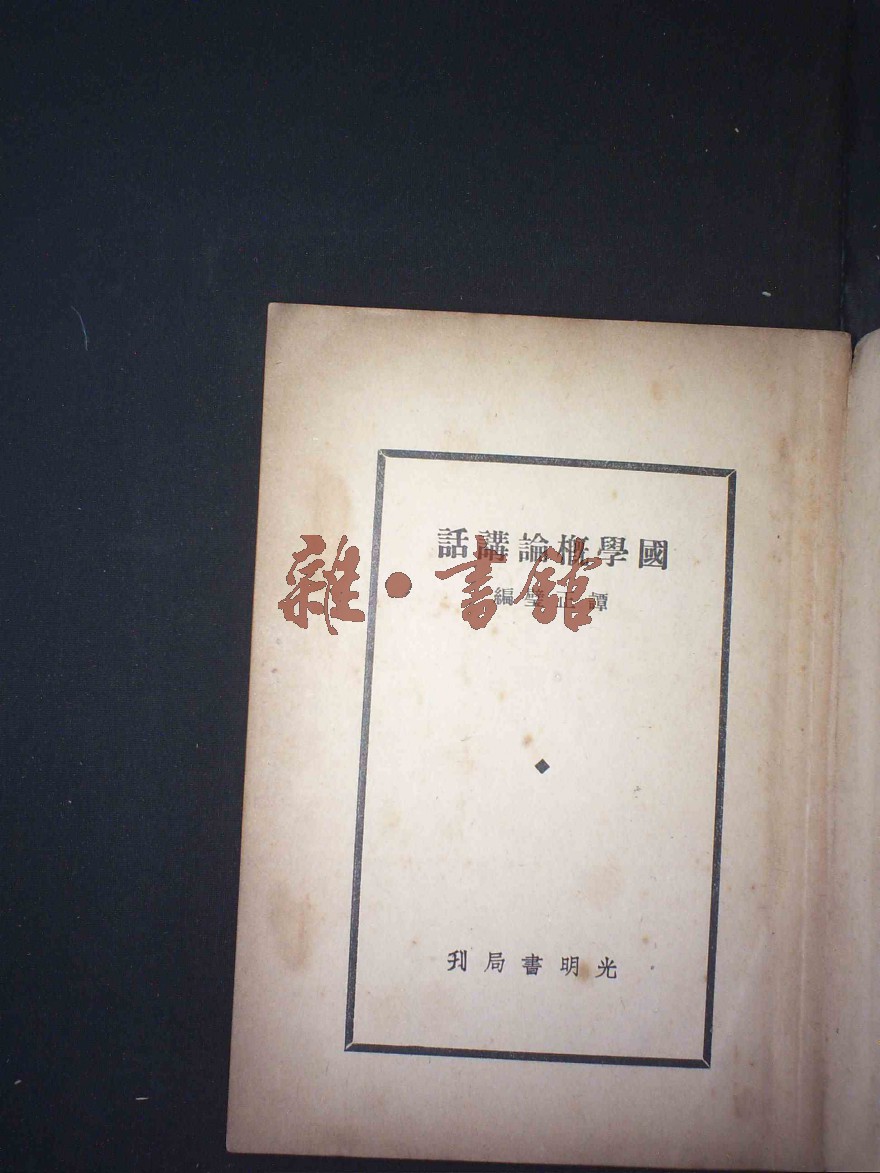 國學概論講話
譚正璧編
雜·書館
光明書局刋